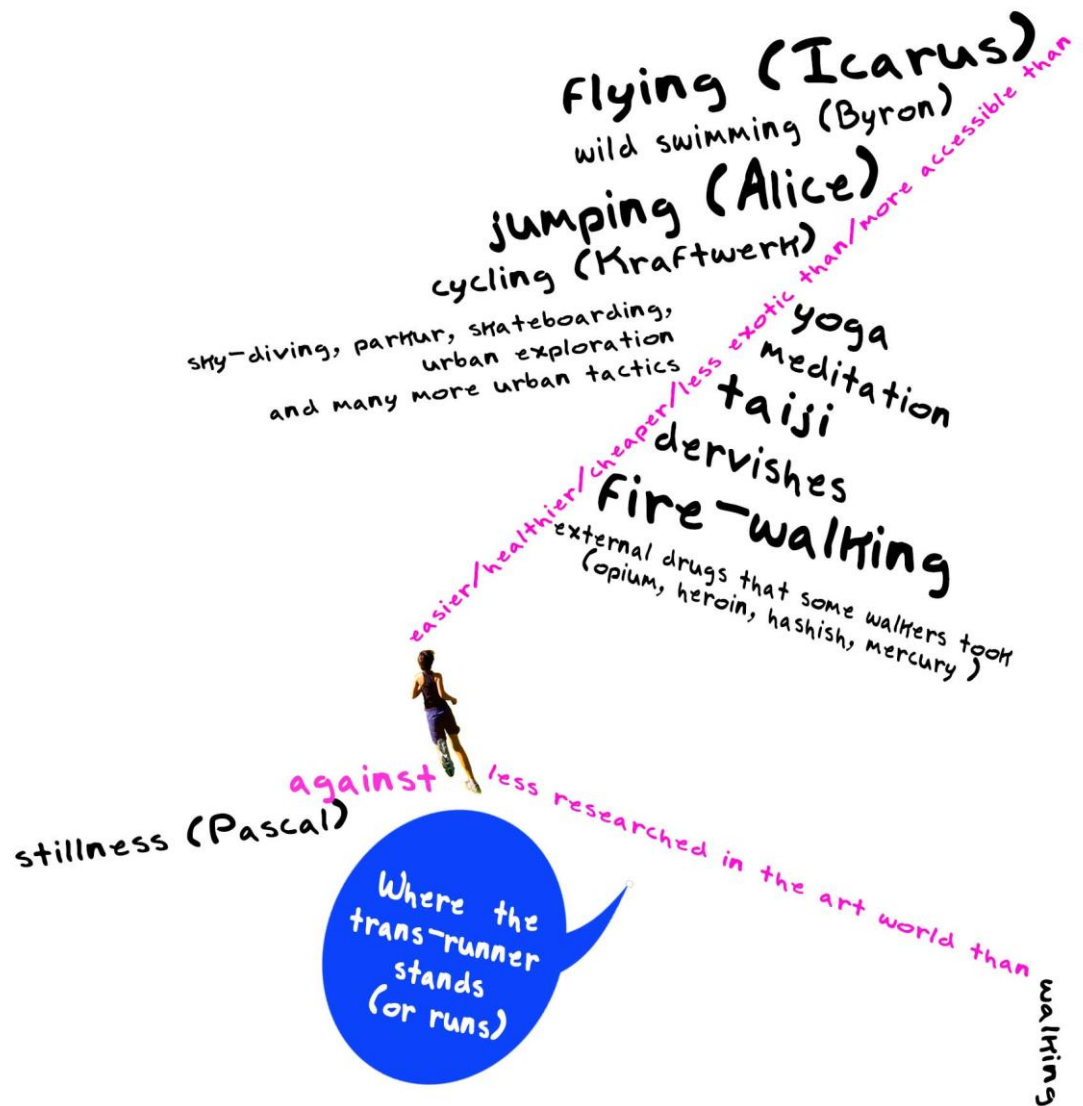 flying (Icarus)
wild swimming (Byron)
jumping (Alice)
cycling (Kraftwerk)
sky-diving, parkur, skateboarding,
urban exploration
and many more urban tactics
easier/healthier/cheaper/less exotic than/more accessible than
yoga
meditation
taiji
dervishes
fire-walking
external drugs that some walkers took
(opium, heroin, hashish, mercury)
against
stillness (Pascal)
less researched in the art world than
walking
Where the
trans-runner
stands
(or runs)